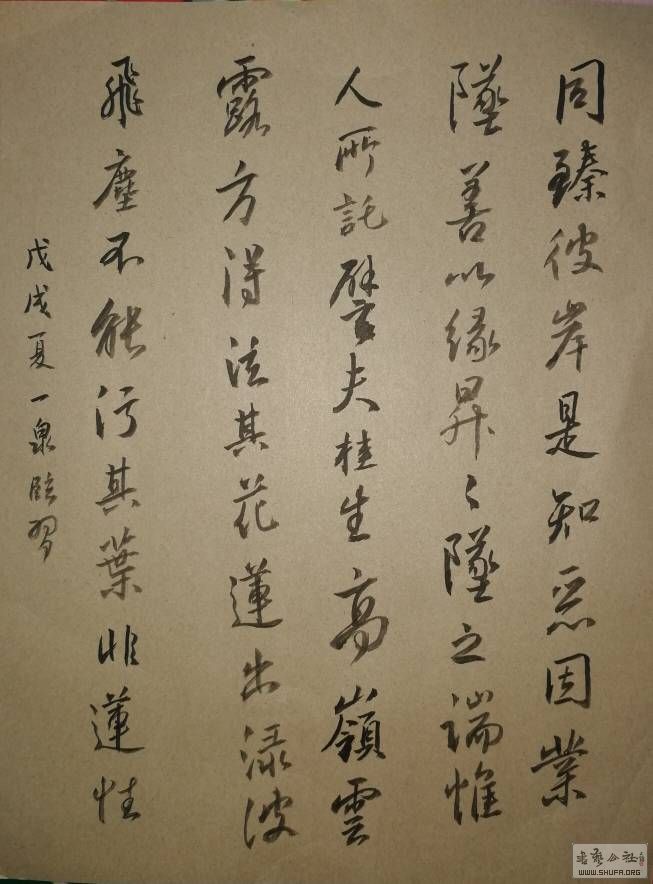 同臻彼岸是知惡因業
墜善以緣昇〻墜之端惟
人所託譬夫桂生高嶺雲
露方得泫其花蓮出淥波
飛塵不能污其葉非蓮性
戊戌夏一泉臨習
書藝公社
WWW.SHUFA.ORG